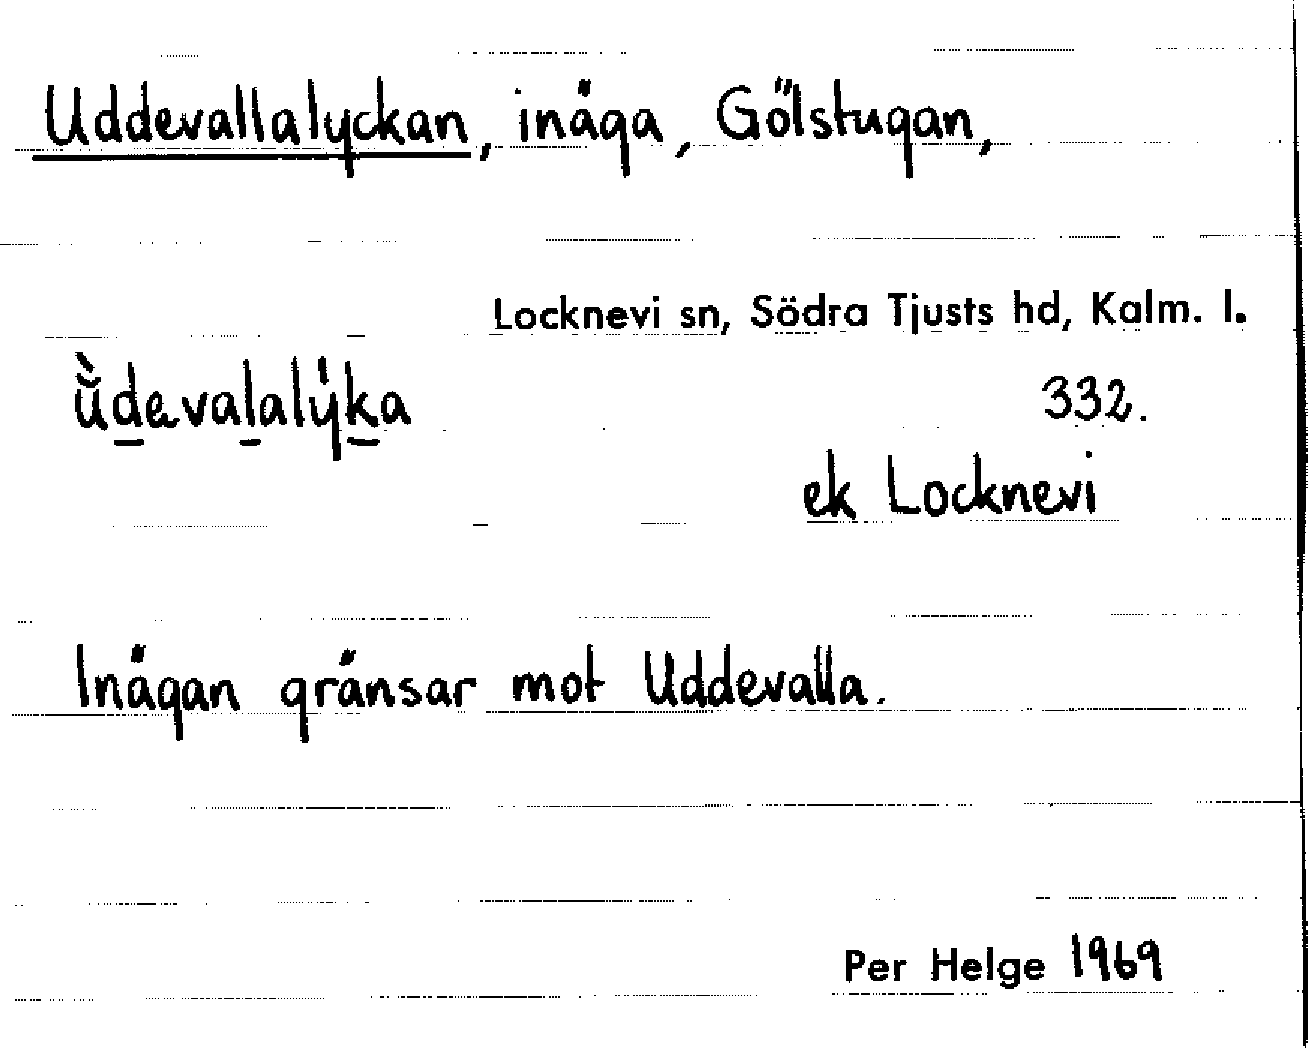 Uddevallalyckan, inäga, Gölstugan,
Locknevi sn, Södra Tjusts hd, Kalm. l.
ǜd̲eval̲alẏk̲a
332.
ek Locknevi
Inägan gränsar mot Uddevalla.
Per Helge 1969